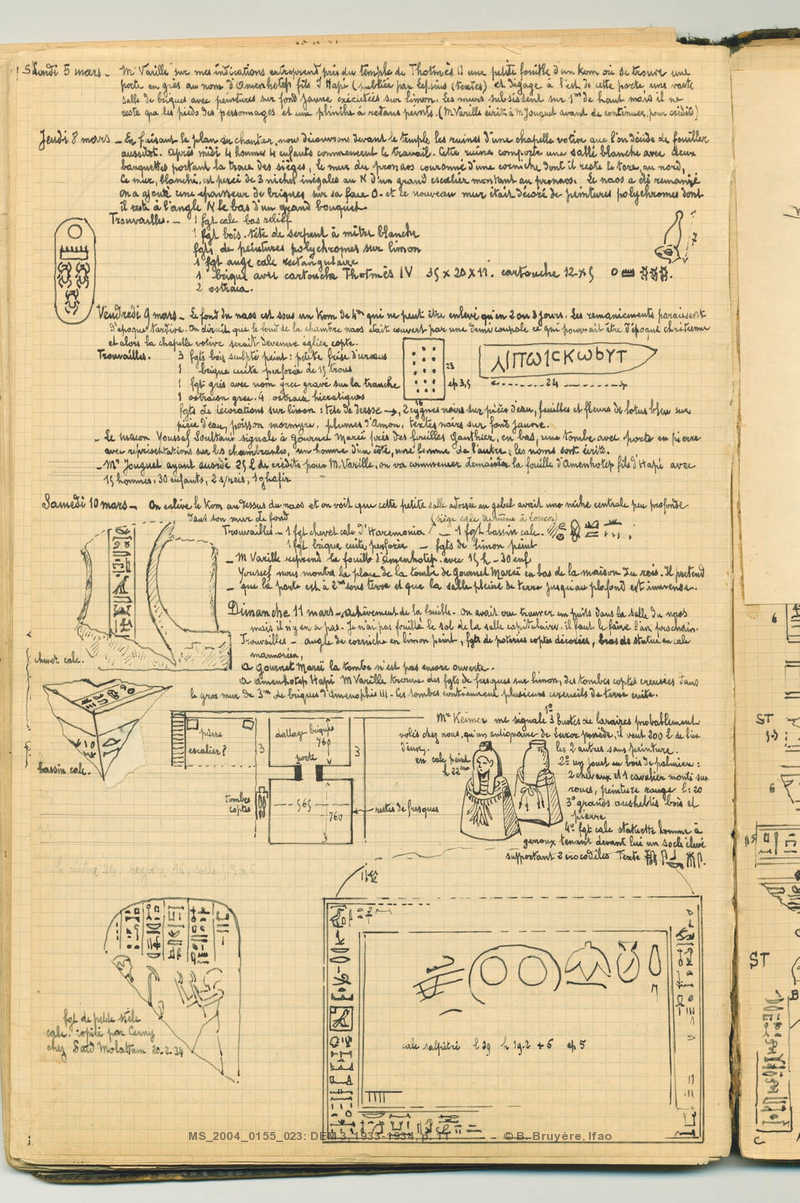 Lundi 5 mars - Mr Varille sur mes indications entreprend près du temple de Thotmès II une petite fouille d'un kom où se trouve une
porte en grès au nom d'Amenhotep fils d'Hapi (publiée par Lepsius (textes) et dégage à l'est de cette porte une vaste
salle de briques avec peintures sur fond jaune exécutées sur limon. Les murs subsistent sur 1m de haut mais il ne
reste que les pieds des personnages et une plinthe à redans peints. (M Varille écrit à M Jouguet avant de continuer, pour crédits)
Jeudi 8 mars - En faisant le plan du chantier, nous découvrons devant le temple les ruines d'une chapelle votive que l'on décide de fouiller
aussitôt. Après midi 4 hommes 4 enfants commencent le travail. Cette ruine comporte une salle blanche avec deux
banquettes portant la trace des sièges, le mur du pronaos couronné d'une corniche dont il reste le tore, au nord,
Ce mur, blanchi, est percé de 3 niches inégales au N d'un grand escalier montant au pronaos. Le naos a été remanié
on a ajouté une épaisseur de briques sur sa face O. et ce nouveau mur était décoré de peintures polychromes dont
il reste à l'angle N le bas d'un grand bouquet
Trouvailles. - 1 fgt calc bas relief
1 fgt bois. tête de serpent à mitre blanche
fgts de peintures polychromes sur limon
1 fgt auge calc rectangulaire
1 brique avec cartouche Thotmès IV 35 x 20 x 11. cartouche 12 x 5
2 ostraca.
Vendredi 9 mars - Le fond du naos est sous un kom de 4m qui ne peut être enlevé qu'en 2 ou 3 jours. Les remaniements paraissent
d'époque tardive. On dirait que le fond de la chambre naos était couvert par une demi coupole ce qui pourrait être d'époque chrétienne
et alors la chapelle votive serait devenue église copte.
Trouvailles. 3 fgts bois sculpté peint : petite frise d'uraeus
1 brique cuite perforée de 15 trous
1 fgt grès avec nom grec gravé sur la tranche
1 ostracon grec. 4 ostraca hiératiques
28
ep 3,5
24
fgts de décorations sur limon : tête de déesse →, 2 cygnes noirs sur pièce d'eau, feuilles et fleurs de lotus bleu sur
pièce d'eau, poisson mormyre, plumes d'Amon, textes noirs sur fond jaune.
- Le maçon Youssef Soultani signale à Gournet Mareï près des fouilles Gauthier, en bas, une tombe avec porte en pierre
avec représentations sur les chambranles, un homme d'un côté, une femme de l'autre ; les noms sont écrits.
- Mr Jouguet ayant accordé 25 £ de crédits pour M. Varille, on va commencer demain la fouille d'Amenhotep fils d'Hapi avec
15 hommes, 30 enfants, 2 s/reis, 1 ghafir
Samedi 10 mars - On enlève le kom au dessus du naos et on voit que cette petite salle adossée au gebel avait une niche centrale peu profonde
dans son mur de fond
Trouvailles - 1 fgt chevet calc d'Haremouia - 1 fgt bassin calc.
1 fgt brique cuite perforée - fgts de limon peint
- M Varille reprend la fouille d'Amenhotep. avec 15 h - 30 enf.
Youssef nous montra la place de la tombe de Gournet Mareï en bas de la maison du reis. Il prétend
que la porte est à 2m sous terre et que la salle pleine de terre jusqu'au plafond est immense.
Dimanche 11 mars - Achèvement de la fouille. On avait cru trouver un puits dans la salle du naos
mais il n'y en a pas. Je n'ai pas fouillé le sol de la salle capitulaire, il faut le faire l'an prochain.
Trouvailles - angle de corniche en limon peint, fgts de poteries coptes décorées, bras de statue en calc
marmoréen,
A Gournet Mareï la tombe n'est pas encore ouverte.
A Amenhotep Hapi M Varille trouve des fgts de fresques sur limon, des tombes coptes creusées dans
le gros mur de 3m de briques d'Amenophis III - Ces tombes contiennent plusieurs cercueils de terre cuite.
chevet calc.
bassin calc.
pierre
escalier ?
3
dallage briques
760
porte
3
tombes
coptes
565
760
restes de fresques
Mr Keimer me signale 1º 3 bustes de laraires probablement
volés chez nous, qu'un antiquaire de Luxor possède, il veut 200 £ de l'un
d'eux,
en calc peint
h 22
les 2 autres sans peinture.
2º un jouet en bois de palmier :
2 chevaux et 1 cavalier monté sur
roues, peinture rouge l : 20
3º grands oushebtis bois et
pierre
4º fgt calc statuette homme à
genoux tenant devant lui un socle élevé
supportant 2 crocodiles Texte
fgt de petite stèle
calc. copié par Cerny
chez Saïd Molattam 20.2.34
calc salpêtré h 29 l 19.2 + 6 ep 5
ST
ST
MS_2004_0155_023: DEM 3, 1933-1934, p. 11 - © B. Bruyère, Ifao